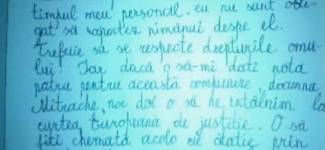 timpul meu personal. eu nu sunt obli-
gat să raportez nimănui despe el.
Trebuie să se respecte drepturile omu-
lui! Iar dacă o să-mi dați nota
patru pentru această compunere, doamna
Mitrache, noi doi o să ne întâlnim la
curtea Europeană de justiție. O să
fiți chemată acolo cu citație prin